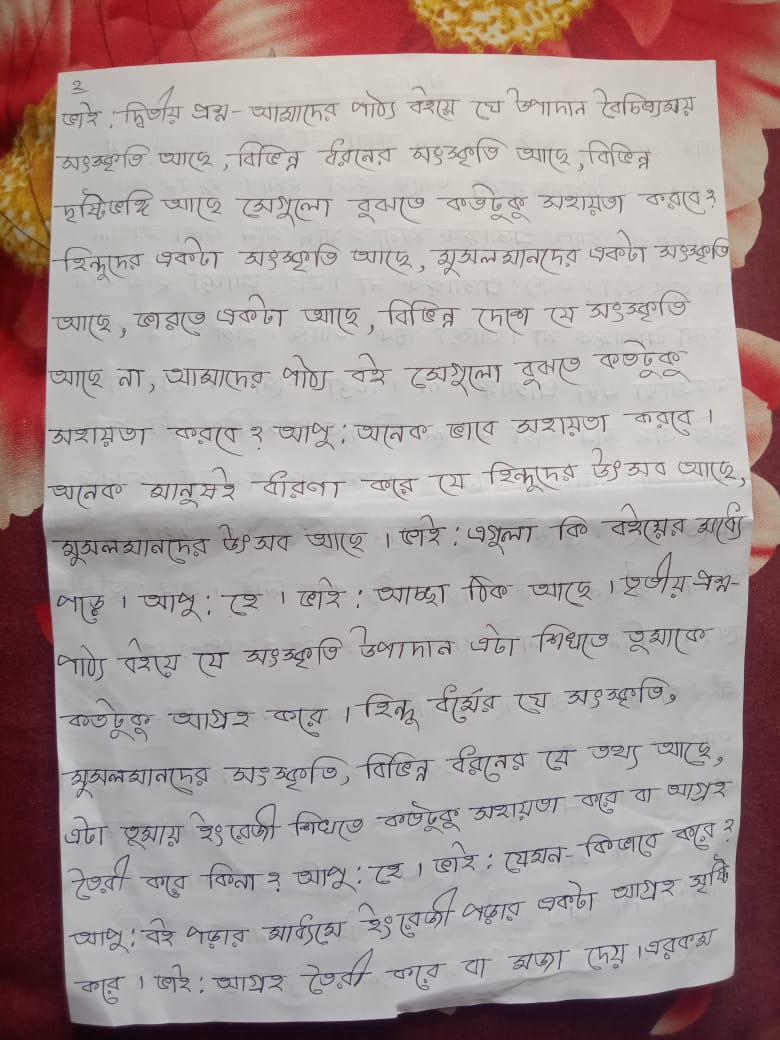 ২
ভাই: দ্বিতীয় প্রশ্ন- আমাদের পাঠ্য বইয়ে যে উপাদান বৈচিত্র্যময়
সংস্কৃতি আছে, বিভিন্ন ধরনের সংস্কৃতি আছে, বিভিন্ন
দৃষ্টিভঙ্গি আছে সেগুলো বুঝতে কতটুকু সহায়তা করবে?
হিন্দুদের একটা সংস্কৃতি আছে, মুসলমানদের একটা সংস্কৃতি
আছে, ভারতে একটা আছে, বিভিন্ন দেশে যে সংস্কৃতি
আছে না, আমাদের পাঠ্য বই সেগুলো বুঝতে কতটুকু
সহায়তা করবে? আপু: অনেক ভাবে সহায়তা করবে।
অনেক মানুষই ধারণা করে যে হিন্দুদের উৎসব আছে,
মুসলমানদের উৎসব আছে। ভাই: এগুলা কি বইয়ের মধ্যে
পড়ে। আপু: হে। ভাই: আচ্ছা ঠিক আছে। তৃতীয় প্রশ্ন-
পাঠ্য বইয়ে যে সংস্কৃতি উপাদান এটা শিখতে তুমাকে
কতটুকু আগ্রহ করে। হিন্দু ধর্মের যে সংস্কৃতি,
মুসলমানদের সংস্কৃতি, বিভিন্ন ধরনের যে তথ্য আছে,
এটা তুমায় ইংরেজী শিখতে কতটুকু সহায়তা করে বা আগ্রহ
তৈরী করে কিনা? আপু: হে। ভাই: যেমন- কিভাবে করে?
আপু: বই পড়ার মাধ্যমে ইংরেজী পড়ার একটা আগ্রহ সৃষ্টি
করে। ভাই: আগ্রহ তৈরী করে বা মজা দেয়। এরকম